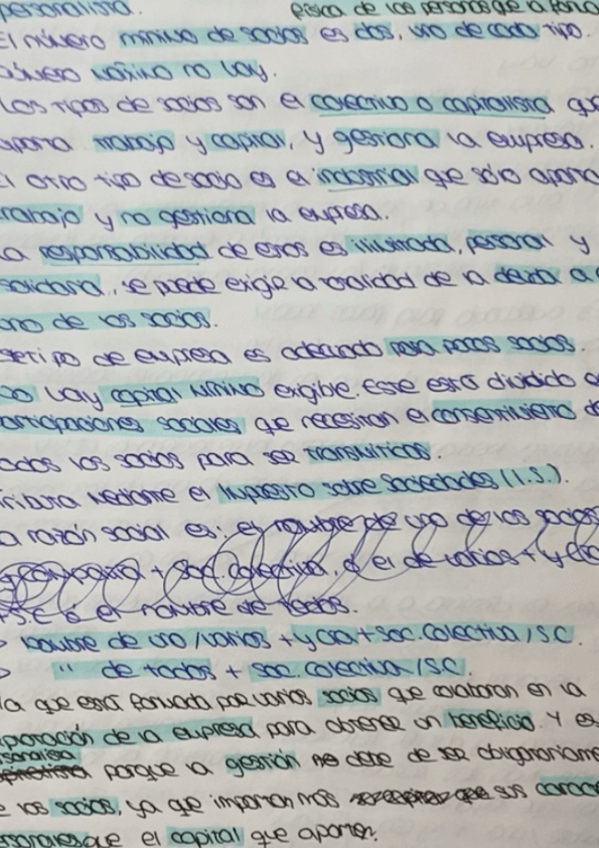 personalista. física de las personas que la forma
El número mínimo de socios es dos, uno de cada tipo.
número máximo no hay.
Los tipos de socios son el colectivo o capitalista que
aporta trabajo y capital, y gestiona la empresa.
El otro tipo de socio es el industrial que sólo aporta
trabajo y no gestiona la empresa.
La responsabilidad de estos es ilimitada, personal y
solidaria, se puede exigir la totalidad de la deuda a
uno de los socios.
este tipo de empresa es adecuado para pocos socios.
No hay capital mínimo exigible. Este está dividido
participaciones sociales que necesitan el consentimiento de
todos los socios para ser transmitidas.
Tributa mediante el Impuesto sobre Sociedades (I.S.).
La razón social es: el nombre de uno de los socios
+ Soc. colectiva, o el de varios + y Cía
+ S.C o el nombre de todos.
> nombre de uno/varios + y Cía + Soc. Colectiva / SC.
> " de todos + Soc. Colectiva / SC.
la que está formada por varios socios que colaboran en la
aportación de la empresa para obtener un beneficio. Y es
personalista porque la gestión no debe de ser obligatoriame
e los socios, ya que importan más sus carac
personales que el capital que aporten.